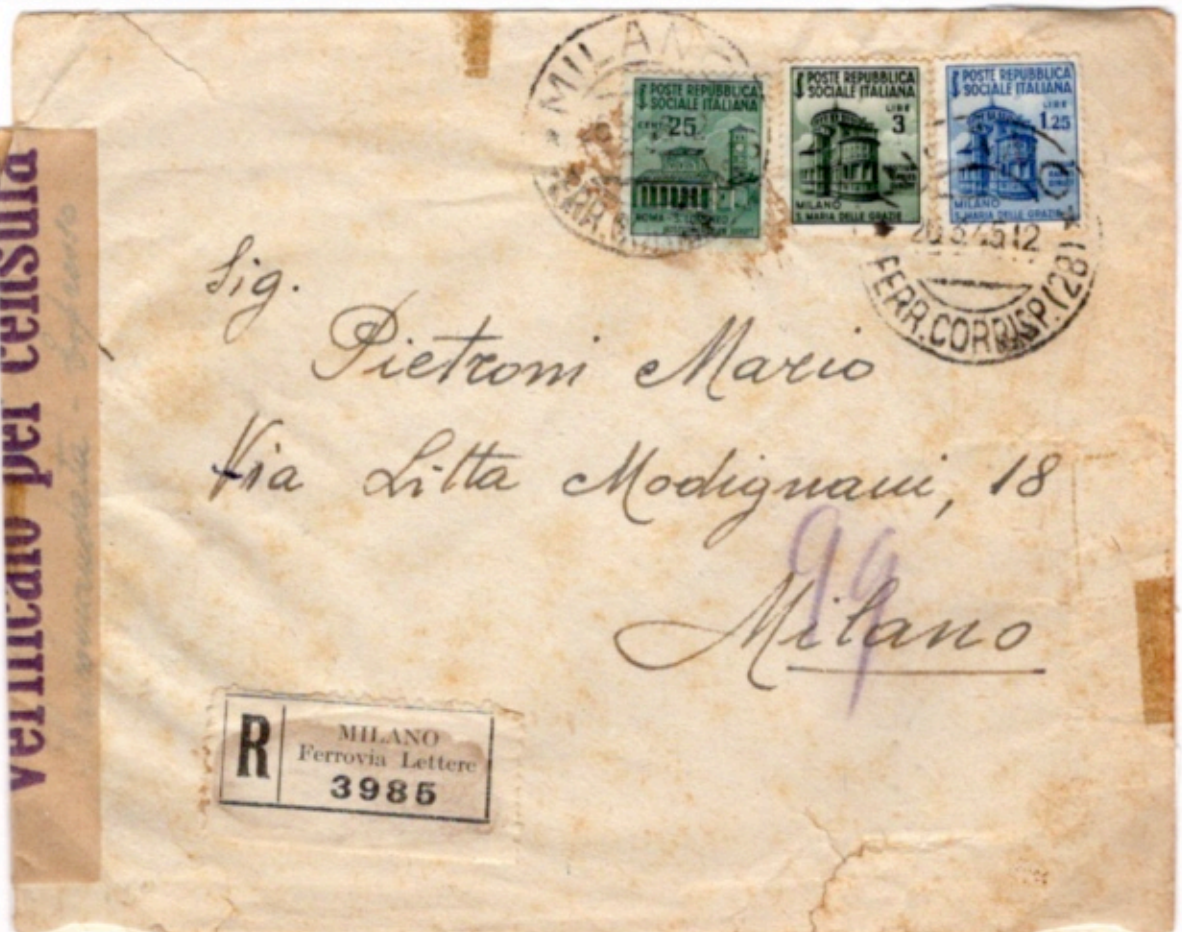 MILANO
FERR.
POSTE REPUBBLICA
SOCIALE ITALIANA
CENT. 25
ROMA
POSTE REPUBBLICA
SOCIALE ITALIANA
LIRE
3
MILANO
S. MARIA DELLE GRAZIE
POSTE REPUBBLICA
SOCIALE ITALIANA
LIRE
1.25
MILANO
S. MARIA DELLE GRAZIE
45 12
FERR. CORRISP. (28)
Sig.
Pietroni Mario
Via Litta Modignani, 18
Milano
99
verificato per censura
R
MILANO
Ferrovia Lettere
3985